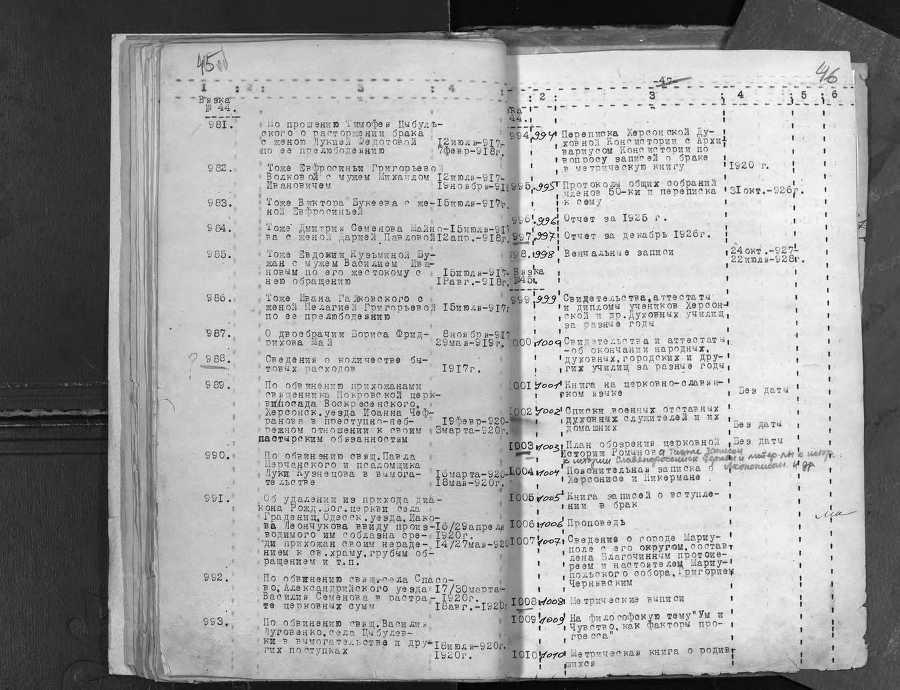 45
1 : 2: 3 : 4 :
Вязка
№ 44.
981. По прошению Тимофея Цыбуль-
ского о расторжении брака
с женою Лукией Федотовой I2июля-9I7-
по ее прелюбодеянию 7февр-9I8г.
982. Тоже Евфросиньи Григорьевой
Волковой с мужем Михаилом I2июля-9I7-
Ивановичем I9ноября-9I
983. Тоже Виктора Букеева с же- I5июля-9I7г.
ной Евфросиньей
984. Тоже Дмитрия Семенова Майно- I5июля-9I7
ва с женой Дарией Павловой I2апр.-9I8г.
985. Тоже Евдокии Кузьминой Бу-
жан с мужем Василием Ива-
новым по его жестокому с I5июля-9I7-
нею обращению Iавг.-9I8г.
986. Тоже Ивана Гайковского с
женой Пелагией Григорьевой I5июля-9I7г
по ее прелюбодеянию
987. О двоебрачии Бориса Фрид- 8ноября-9I7
рихова Май 29мая-9I9г.
? 988. Сведения о количестве бы-
товых расходов I9I7г.
989. По обвинению прихожанами
священника Покровской церк-
ви посада Воскресенского,
Херсонск. уезда Иоанна Чеф-
ранова в преступно-неб- I9февр-920-
режном отношении к своим 3марта-920г.
пастырским обязанностям
990. По обвинению свящ. Павла
Мерчанского и псаломщика
Луки Кузнецова в вымога- I6марта-920-
тельстве I8мая-920г.
991. Об удалении из прихода диа-
кона Рожд. Бог. церкви села
Градениц, Одесск. уезда, Иако-
ва Леончукова ввиду произ- I6/29апреля
водимого им соблазна сре- I920г.
ди прихожан своим нераде- I4/27мая-920
нием к св. храму, грубым об-
ращением и т.п.
992. По обвинению свящ. села Спасо-
во, Александрийского уезда I7/30марта-
Василия Семенова в растра- I920г.
те церковных сумм I8авг.-I920г
993. По обвинению свящ. Василия
Луговенко, села Цыбулев-
ки в вымогательстве и дру- I8июля-920г.
гих поступках I920г.
46
47
2 : 3 : 4 : 5 : 6
44.
994. 994 Переписка Херсонской Ду-
ховной Консистории с Архи-
вариусом Консистории по
вопросу записей о браке
в метрическую книгу I920 г.
995. 995 Протоколы общих собраний 3Iокт.-926г.
членов 50-ки и переписка
к сему
996. 996 Отчет за I925 г.
997. 997 Отчет за декабрь I926г.
998 998 Венчальные записи 24окт.-927-
22июля-928г.
Вязка
№45.
999. 999 Свидетельства, аттестаты
и дипломы учеников Херсон-
ской и др. Духовных училищ
за разные годы
1000. 1000 Свидетельства и аттестаты
-об окончании народных,
духовных, городских и дру-
гих училищ за разные годы
I00I 1001 Книга на церковно-славян-
ском языке Без даты
I002 1002 Списки военных отставных
духовных служителей и их Без даты
домашних
I003 1003 План обозрения церковной Без даты
истории Романова
I004 1004 Пояснительная записка о
Херсонисе и Инкермане
I005 1005 Книга записей о вступле-
нии в брак
I006 1006 Проповедь
I007 1007 Сведение о городе Мариу-
поле с его округом, состав-
лена Благочинным протоие-
реем и настоятелем Мариу-
польского собора, Григорием
Чернявским
I008 1008 Метрические выписи
I009 1009 На философскую тему "Ум и
Чувство, как факторы про-
гресса"
I0I0 1010 Метрическая книга о родив-
шихся